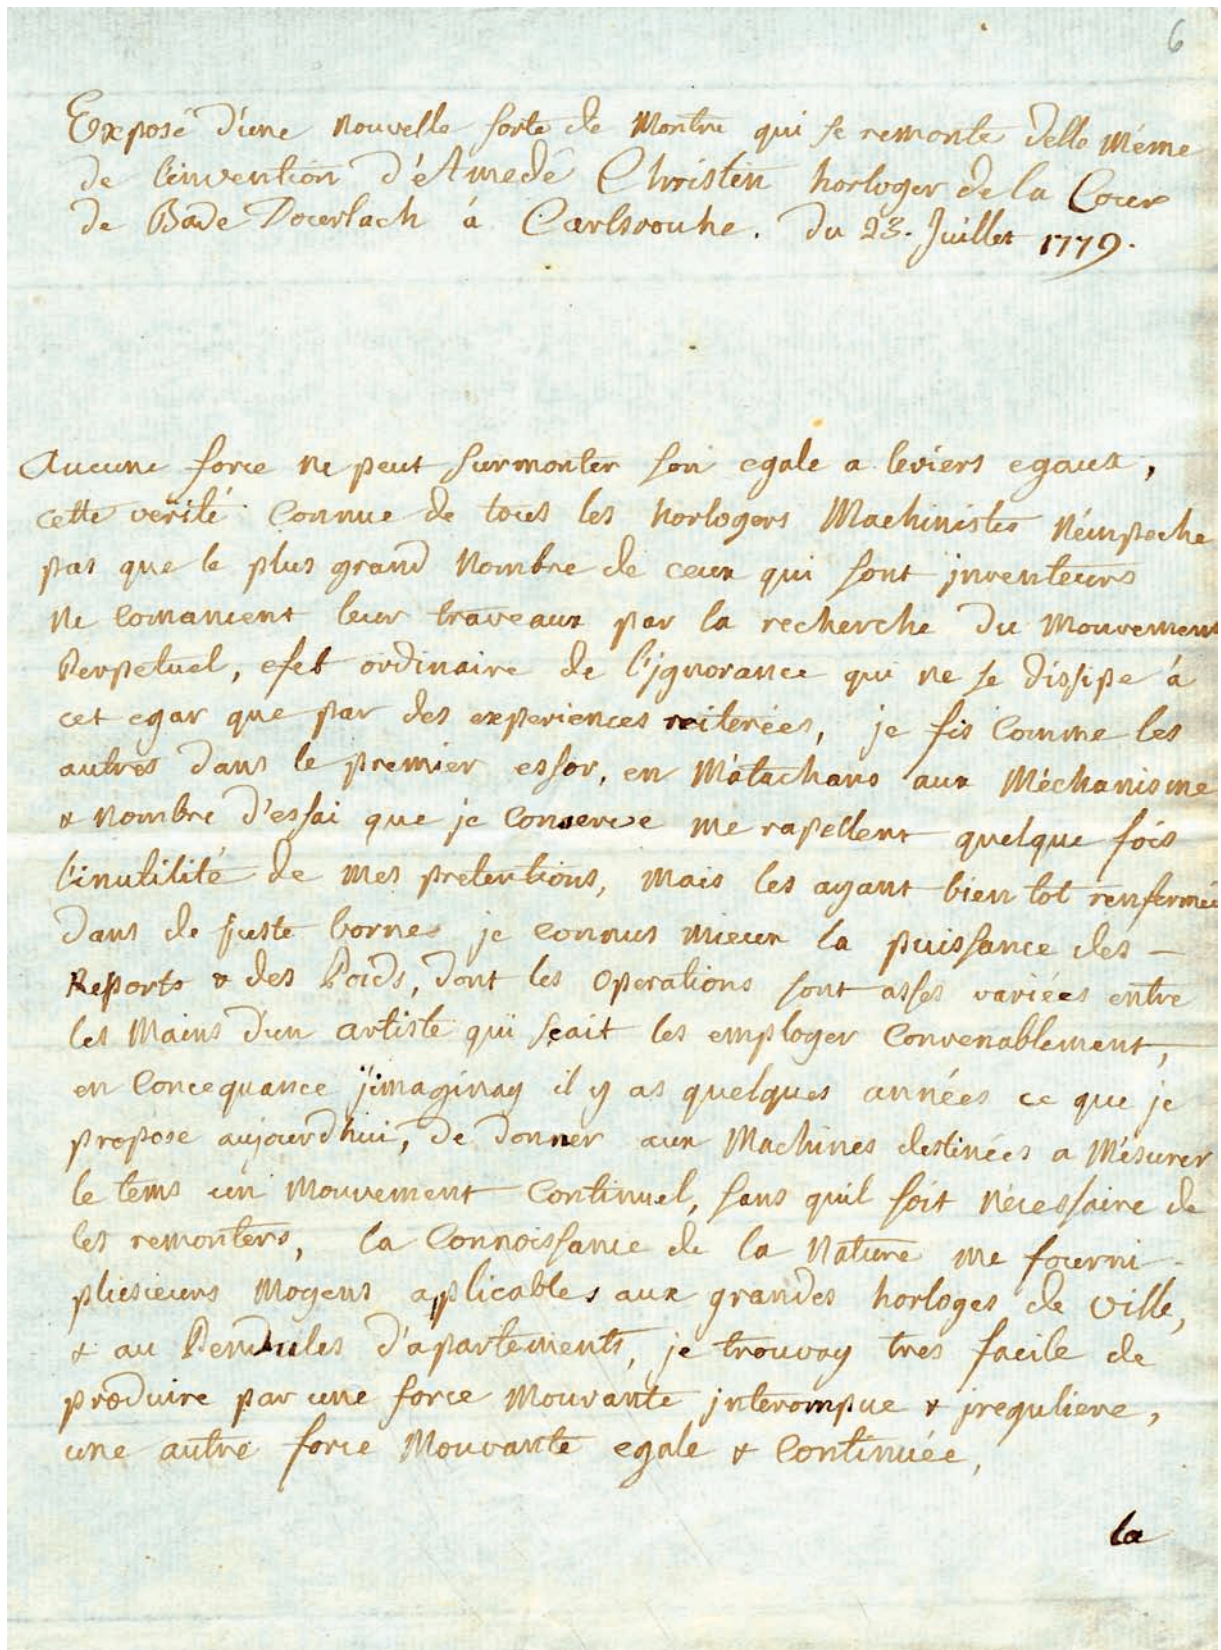 6
Exposé d'une nouvelle sorte de Montre qui se remonte d'elle Même
de l'invention d'éAmedé Christin horloger de la Cour
de Bade Dourlach á Carlsrouhe. du 23. Juillet 1779.
Aucune force ne peut surmonter son egale a leviers egaux,
cette verité Connue de tous les horlogers Machinistes N'émpeche
pas que le plus grand Nombre de ceux qui sont jnventeurs
ne Comancent leur traveaux par la recherche du Mouvement
Perpetuel, efet ordinaire de l'jgnorance qui ne se dissipe á
cet egar que par des experiences reiterées, je fis Comme les
autres dans le premier essor, en M'atachans aux Méchanisme
& Nombre d'essai que je Conserve me rapellent quelque fois
l'inutilité de mes pretentions, mais les ayant bien tot renfermée
dans de juste bornes je Connus mieux la puissance des –
Reports & des Poids, dont les Operations sont asses variées entre
les Mains d'un artiste qui sçait les employer Convenablement,
en Concequance j'imaginay il y as quelques années ce que je
propose aujourdhui, de donner aux Machines destinées a Mésurer
le tems un Mouvement Continuel, sans quil soit Nécessaire de
les remonters, la Connoissance de la Nature me fourni
plusieurs Moyens aplicables aux grandes horloges de ville,
& au Pendules d'apartements, je trouvay tres facile de
produire par une force Mouvante jnterompue & jreguliere,
une autre force Mouvante egale & Continuée,
la